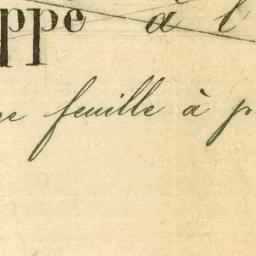 ppe à l
e feuille à p